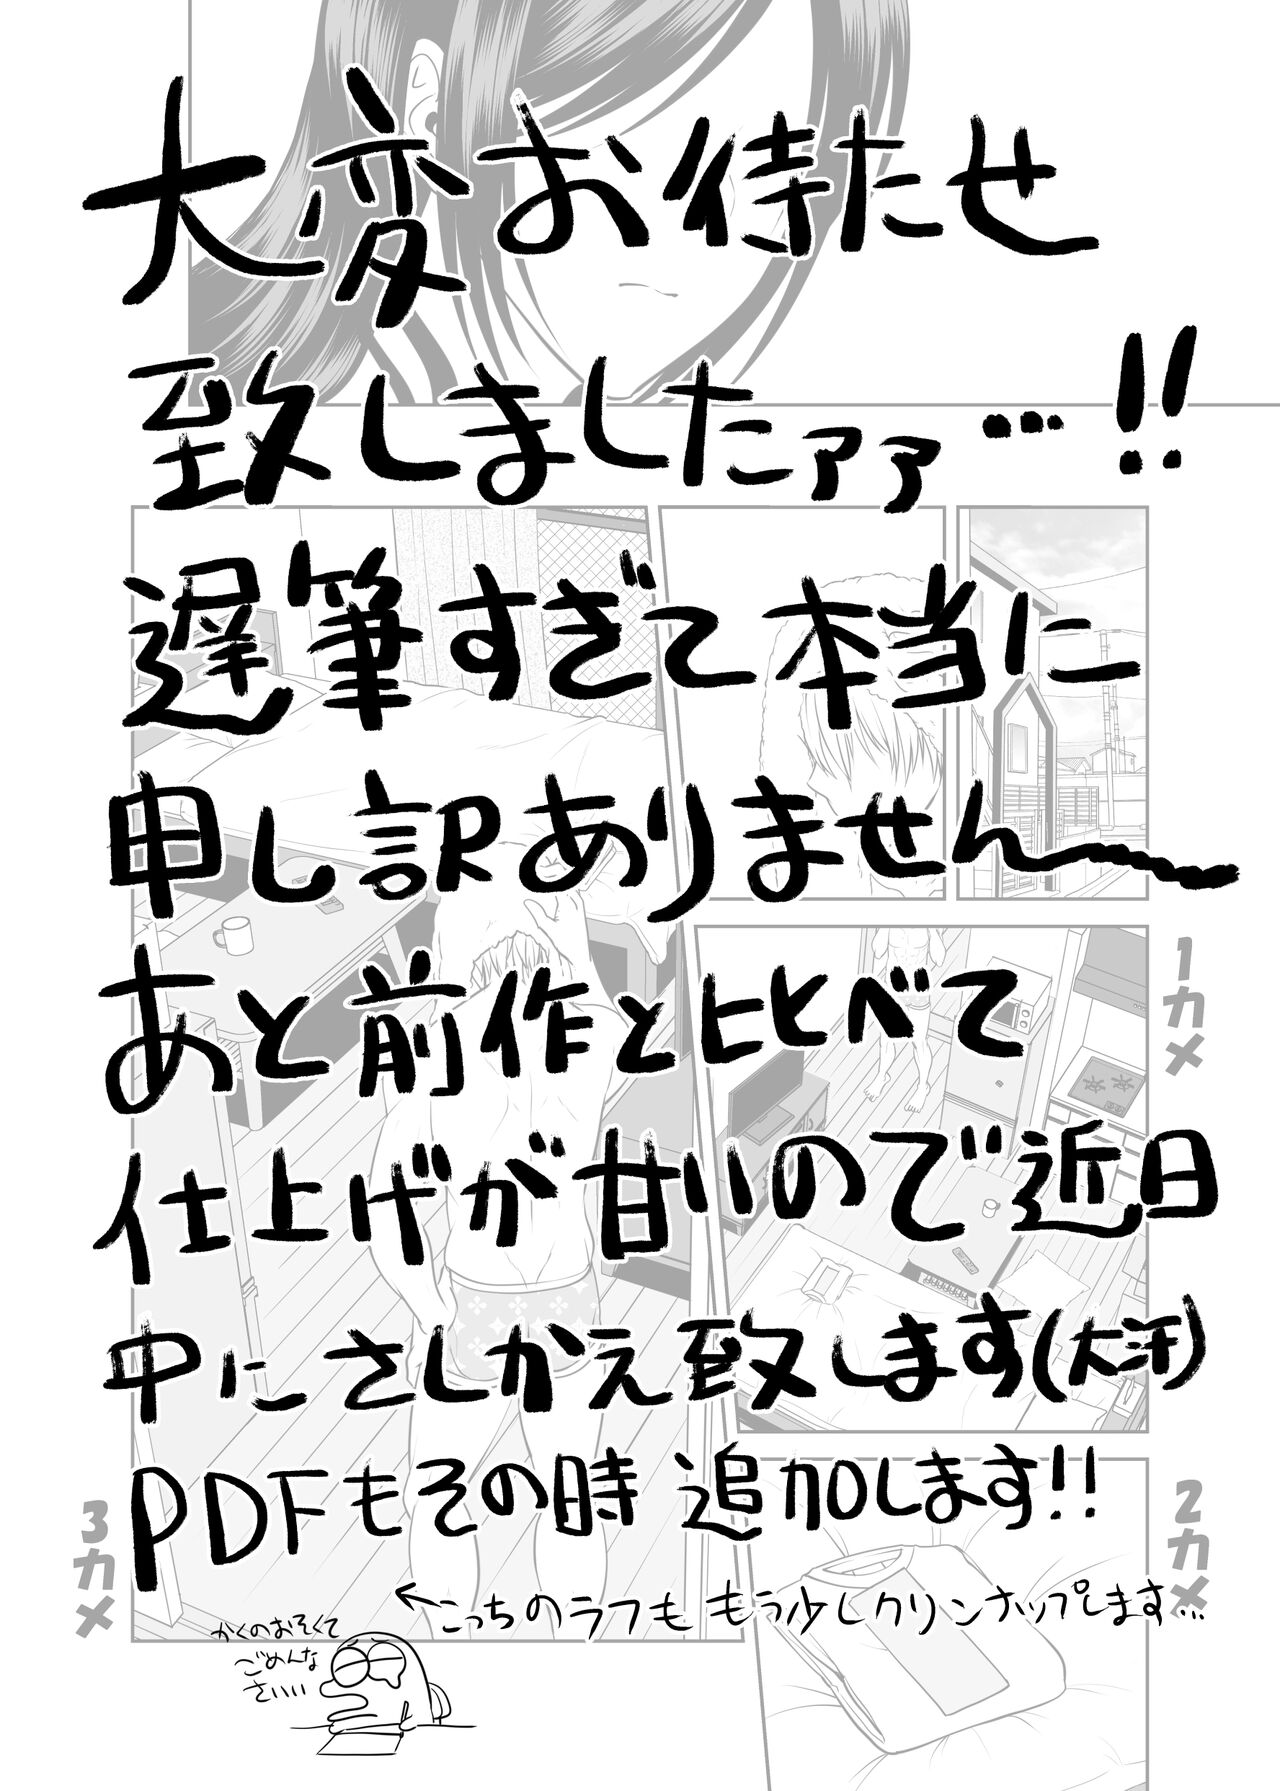 大変お待たせ
致しましたァァ…!!
遅筆すぎて本当に
申し訳ありません〜
あと前作と比べて
仕上げが甘いので近日
中にさしかえ致します(大汗)
PDFもその時追加します!!
←こっちのラフももう少しクリンナップします…
かくのおそくて
ごめんな
さいいい
1カメ
2カメ
3カメ